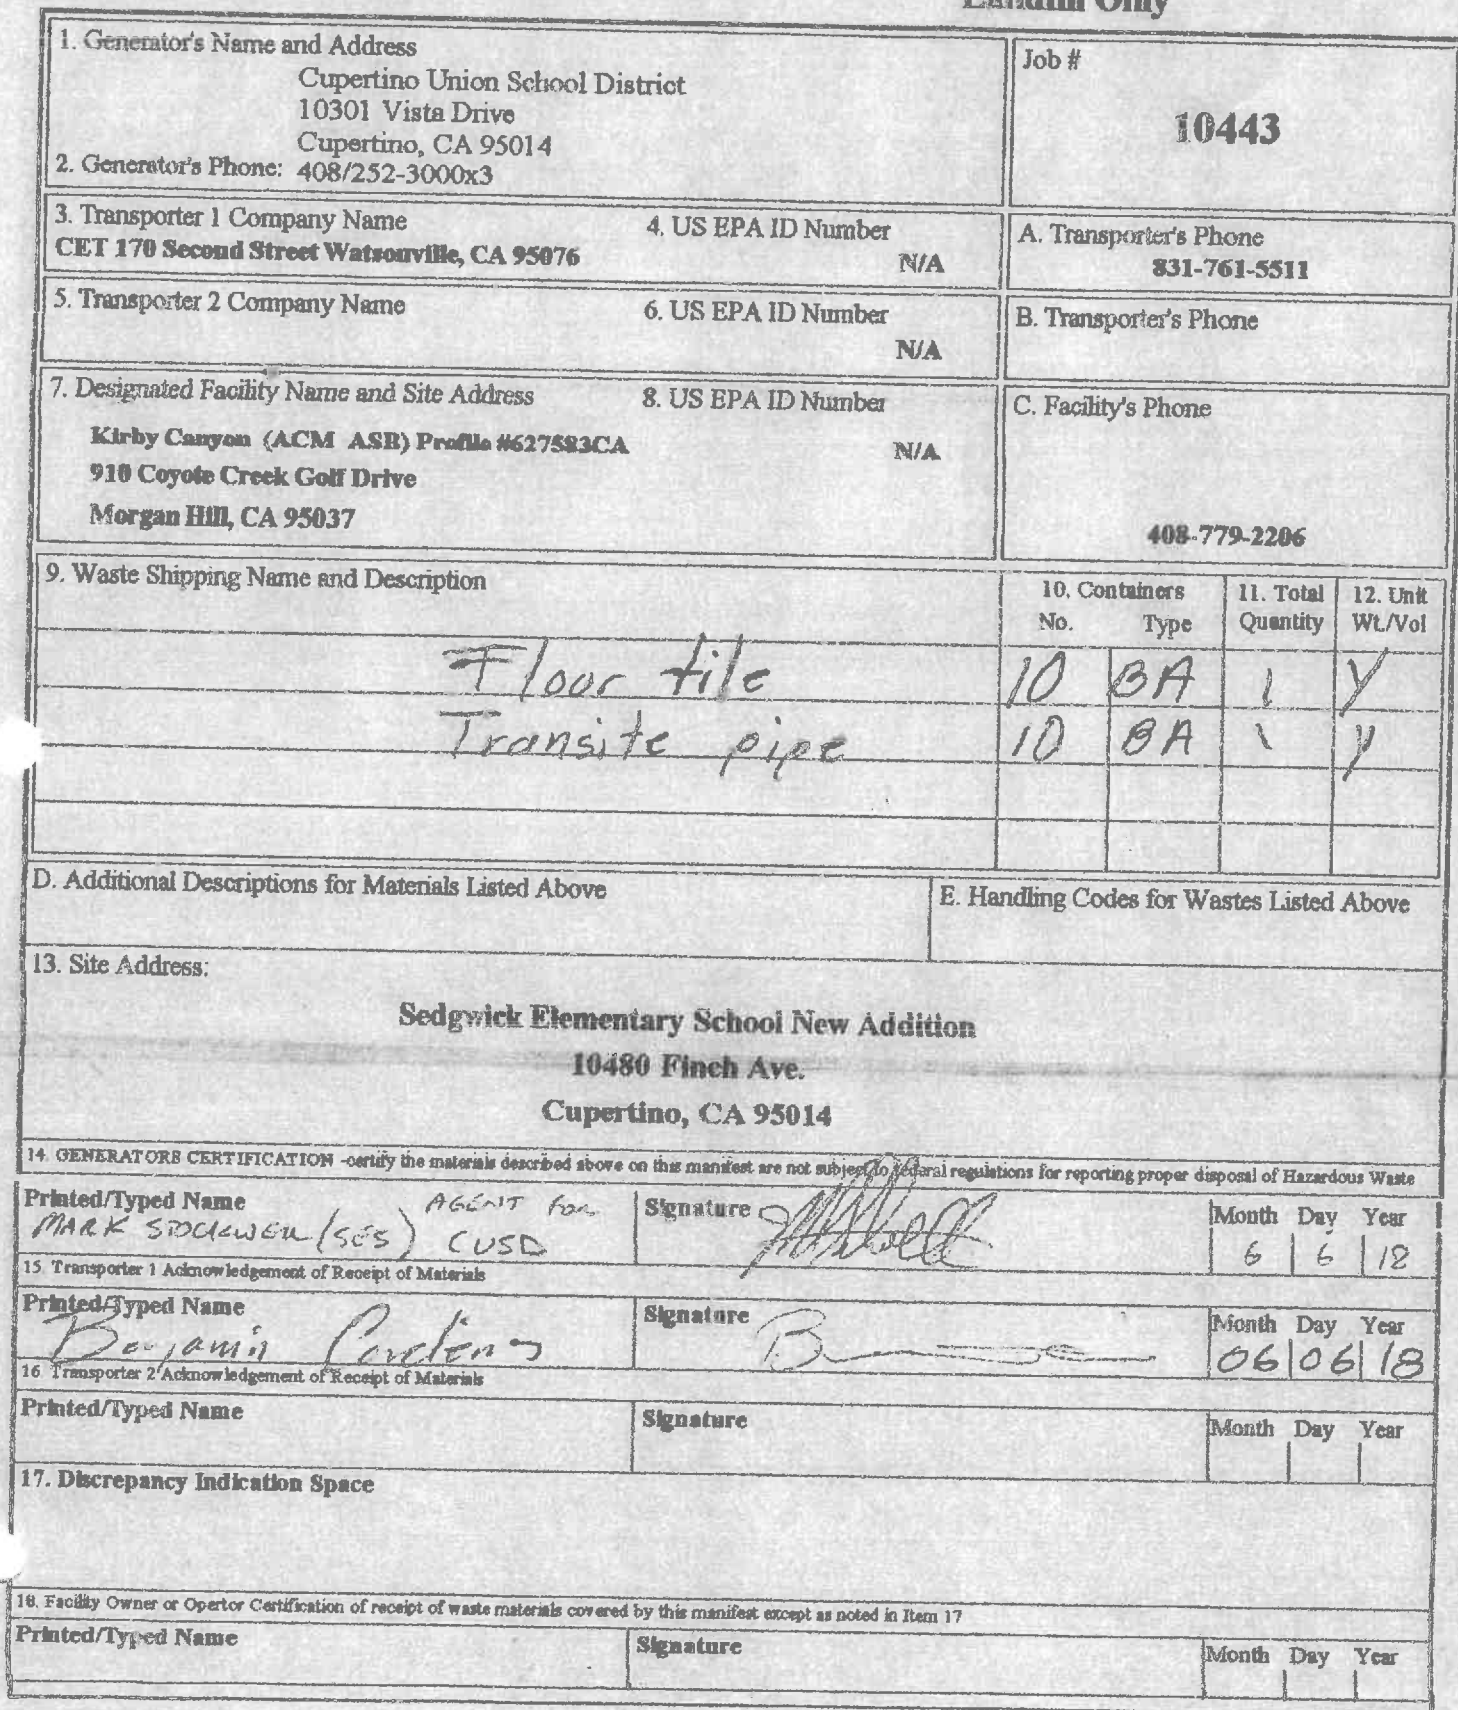 Landfill Only
1. Generator's Name and Address
Cupertino Union School District
10301 Vista Drive
Cupertino, CA 95014
2. Generator's Phone: 408/252-3000x3
Job #
10443
3. Transporter 1 Company Name
4. US EPA ID Number
CET 170 Second Street Watsonville, CA 95076
N/A
A. Transporter's Phone
831-761-5511
5. Transporter 2 Company Name
6. US EPA ID Number
N/A
B. Transporter's Phone
7. Designated Facility Name and Site Address
8. US EPA ID Number
Kirby Canyon (ACM ASB) Profile #627583CA
N/A
910 Coyote Creek Golf Drive
Morgan Hill, CA 95037
C. Facility's Phone
408-779-2206
9. Waste Shipping Name and Description
10. Containers
No. Type
11. Total Quantity
12. Unit Wt./Vol
Flour tile 10 BA 1 Y
Transite pipe 10 BA 1 Y
D. Additional Descriptions for Materials Listed Above
E. Handling Codes for Wastes Listed Above
13. Site Address:
Sedgwick Elementary School New Addition
10480 Finch Ave.
Cupertino, CA 95014
14. GENERATORS CERTIFICATION -certify the materials described above on this manifest are not subject to federal regulations for reporting proper disposal of Hazardous Waste
Printed/Typed Name
AGENT FOR
MARK STOCKWELL (SES) CUSD
Signature
Month Day Year
6 6 18
15. Transporter 1 Acknowledgement of Receipt of Materials
Printed/Typed Name
Benjamin
Signature
Month Day Year
06 06 18
16. Transporter 2 Acknowledgement of Receipt of Materials
Printed/Typed Name
Signature
Month Day Year
17. Discrepancy Indication Space
18. Facility Owner or Opertor Certification of receipt of waste materials covered by this manifest except as noted in Item 17
Printed/Typed Name
Signature
Month Day Year